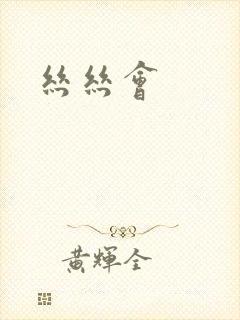 絲絲會
黃輝全